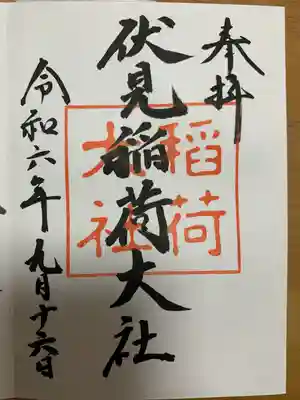 奉拝
伏見稲荷大社
稲荷
大社
令和六年九月十六日